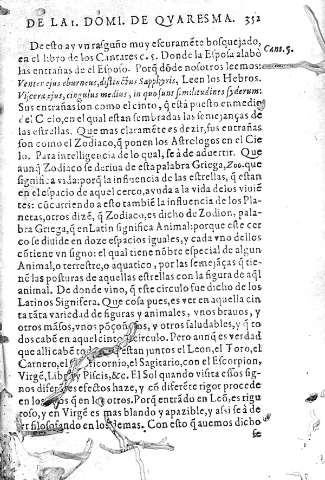 DE LA 1. DOMI. DE QVARESMA. 352
De esto ay vn rasguño muy escuramẽte bosquejado,
en el libro de los Cantares c. 5. Donde la Esposa alabò
Cant. 5.
las entrañas de el Esposo. Porq̃ dõde nosotros leemos:
Venter eius eburneus, distinctus Sapphyris, Leen los Hebros.
Viscera eius, cingulus medius, in quo sunt similitudines syderum:
Sus entrañas son como el cinto, q̃ està puesto en medio
del Cielo, en el qual estan sembradas las semejanças de
las estrellas. Que mas claramẽte es dezir, sus entrañas
son como el Zodiaco, q̃ ponen los Astrologos en el Cie
lo. Para intelligencia de lo qual, se à de aduertir. Que
aunq̃ Zodiaco se deriua de esta palabra Griega, Zoe. que
significa vida: porq̃ la influencia de las estrellas, q̃ estan
en el espacio de aquel cerco, ayuda a la vida de los viuiẽ
tes: cõcurriendo a esto tambiẽ la influencia de los Pla-
netas, otros dizẽ, q̃ Zodiaco, es dicho de Zodion, pala-
bra Griega, q̃ en Latin significa Animal: porque este cer
co se diuide en doze espacios iguales, y cada vno dellos
cõtiene vn signo: el qual tiene nõbre especial de algun
Animal, o terrestre, o aquatico, por las semejãças q̃ tie-
nen las posturas de aquellas estrellas con la figura de aq̃l
animal. De donde vino, q̃ este circulo fue dicho de los
Latinos Signifera. Que cosa pues, es ver en aquella cin
ta tãta variedad de figuras y animales, vnos brauos, y
otros mãsos, vnos põçoñosos, y otros saludables, y q̃ to
dos cabẽ en aquel cinto circulo. Pero aunq̃ es verdad
que alli cabẽ estan juntos el Leon, el Toro, el
Carnero, el el Sagitario, con el Escorpion,
Virgẽ, Libra y Piscis, &c. El Sol quando visita essos sig-
nos diferẽtes efectos haze, y cõ diferẽte rigor procede
en los vnos que en los otros. Porq̃ entrãdo en Leõ, es rigu
roso, y en Virgẽ es mas blando y apazible, y assi se à de
ir filosofando en los demas. Con esto q̃ auemos dicho
se